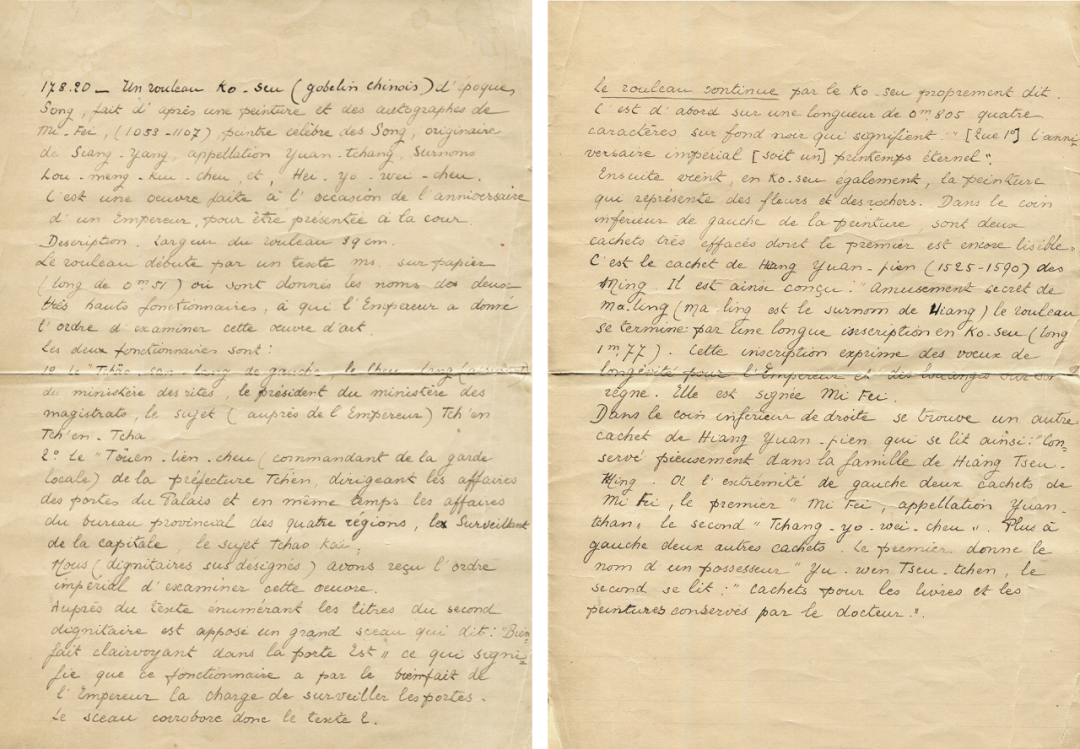 178.20 — Un rouleau Ko-seu (gobelin chinois) d'époque
Song, fait d'après une peinture et des autographes de
Mi-Fei, (1053-1107), peintre célèbre des Song, originaire
de Siang-Yang, appellation Yuan-tchang, Surnoms
Lou-meng-kiu-cheu et, Hei-yo-wei-cheu.
C'est une oeuvre faite à l'occasion de l'anniversaire
d'un Empereur, pour être présentée à la cour
Description. Largeur du rouleau 39 cm.
Le rouleau débute par un texte ms. sur papier
(long de 0m51) où sont donnés les noms de deux
très hauts fonctionnaires, à qui l'Empereur a donné
l'ordre d'examiner cette oeuvre d'art.
Les deux fonctionnaires sont :
1º le de gauche, le
du ministère des rites, le président du ministère des
magistrats, le sujet (auprès de l'Empereur) Tch'en
Tch'en-Tcha
2º Le "Touen-lien-cheu (commandant de la garde
locale) de la préfecture Tchen, dirigeant les affaires
des portes du Palais et en même temps les affaires
du bureau provincial des quatre régions, le Surveillant
de la capitale, le sujet Tchao Kai,
Nous (dignitaires sus designés) avons reçu l'ordre
impérial d'examiner cette oeuvre.
Auprès du texte enumérant les titres du second
dignitaire est apposé un grand sceau qui dit: "Bien
fait clairvoyant dans la porte Est" ce qui signi-
fie que ce fonctionnaire a par le bienfait de
l'Empereur la charge de surveiller les portes.
Le sceau corrobore donc le texte 2.
Le rouleau continue par le Ko-seu proprement dit.
C'est d'abord sur une longueur de 0m805 quatre
caractères sur fond noir qui signifient: "[Que l'] l'anni-
versaire impérial [soit un] printemps éternel".
Ensuite vient, en Ko-seu également, la peinture
qui représente des fleurs et des rochers. Dans le coin
inférieur de gauche de la peinture, sont deux
cachets très effacés dont le premier est encore lisible.
C'est le cachet de Hiang Yuan-pien (1525-1590) des
Ming. Il est ainsi conçu: "Amusement secret de
Mo.ling (Mo ling est le surnom de Hiang) le rouleau
se termine par une longue inscription en Ko-seu (long
1m77). Cette inscription exprime des voeux de
longévité pour l'Empereur et des louanges sur son
règne. Elle est signée Mi Fei.
Dans le coin inférieur de droite se trouve un autre
cachet de Hiang Yuan-pien qui se lit ainsi: "Con
servé pieusement dans la famille de Hiang Tseu-
King. A l'extrémité de gauche deux cachets de
Mi Fei, le premier "Mi Fei, appellation Yuan-
tchan" le second "Tchang-yo-wei-cheu". Plus à
gauche deux autres cachets. Le premier donne le
nom d'un possesseur "Yu-wen Tseu-tchen, le
second se lit: "Cachets pour les livres et les
peintures conservés par le docteur".